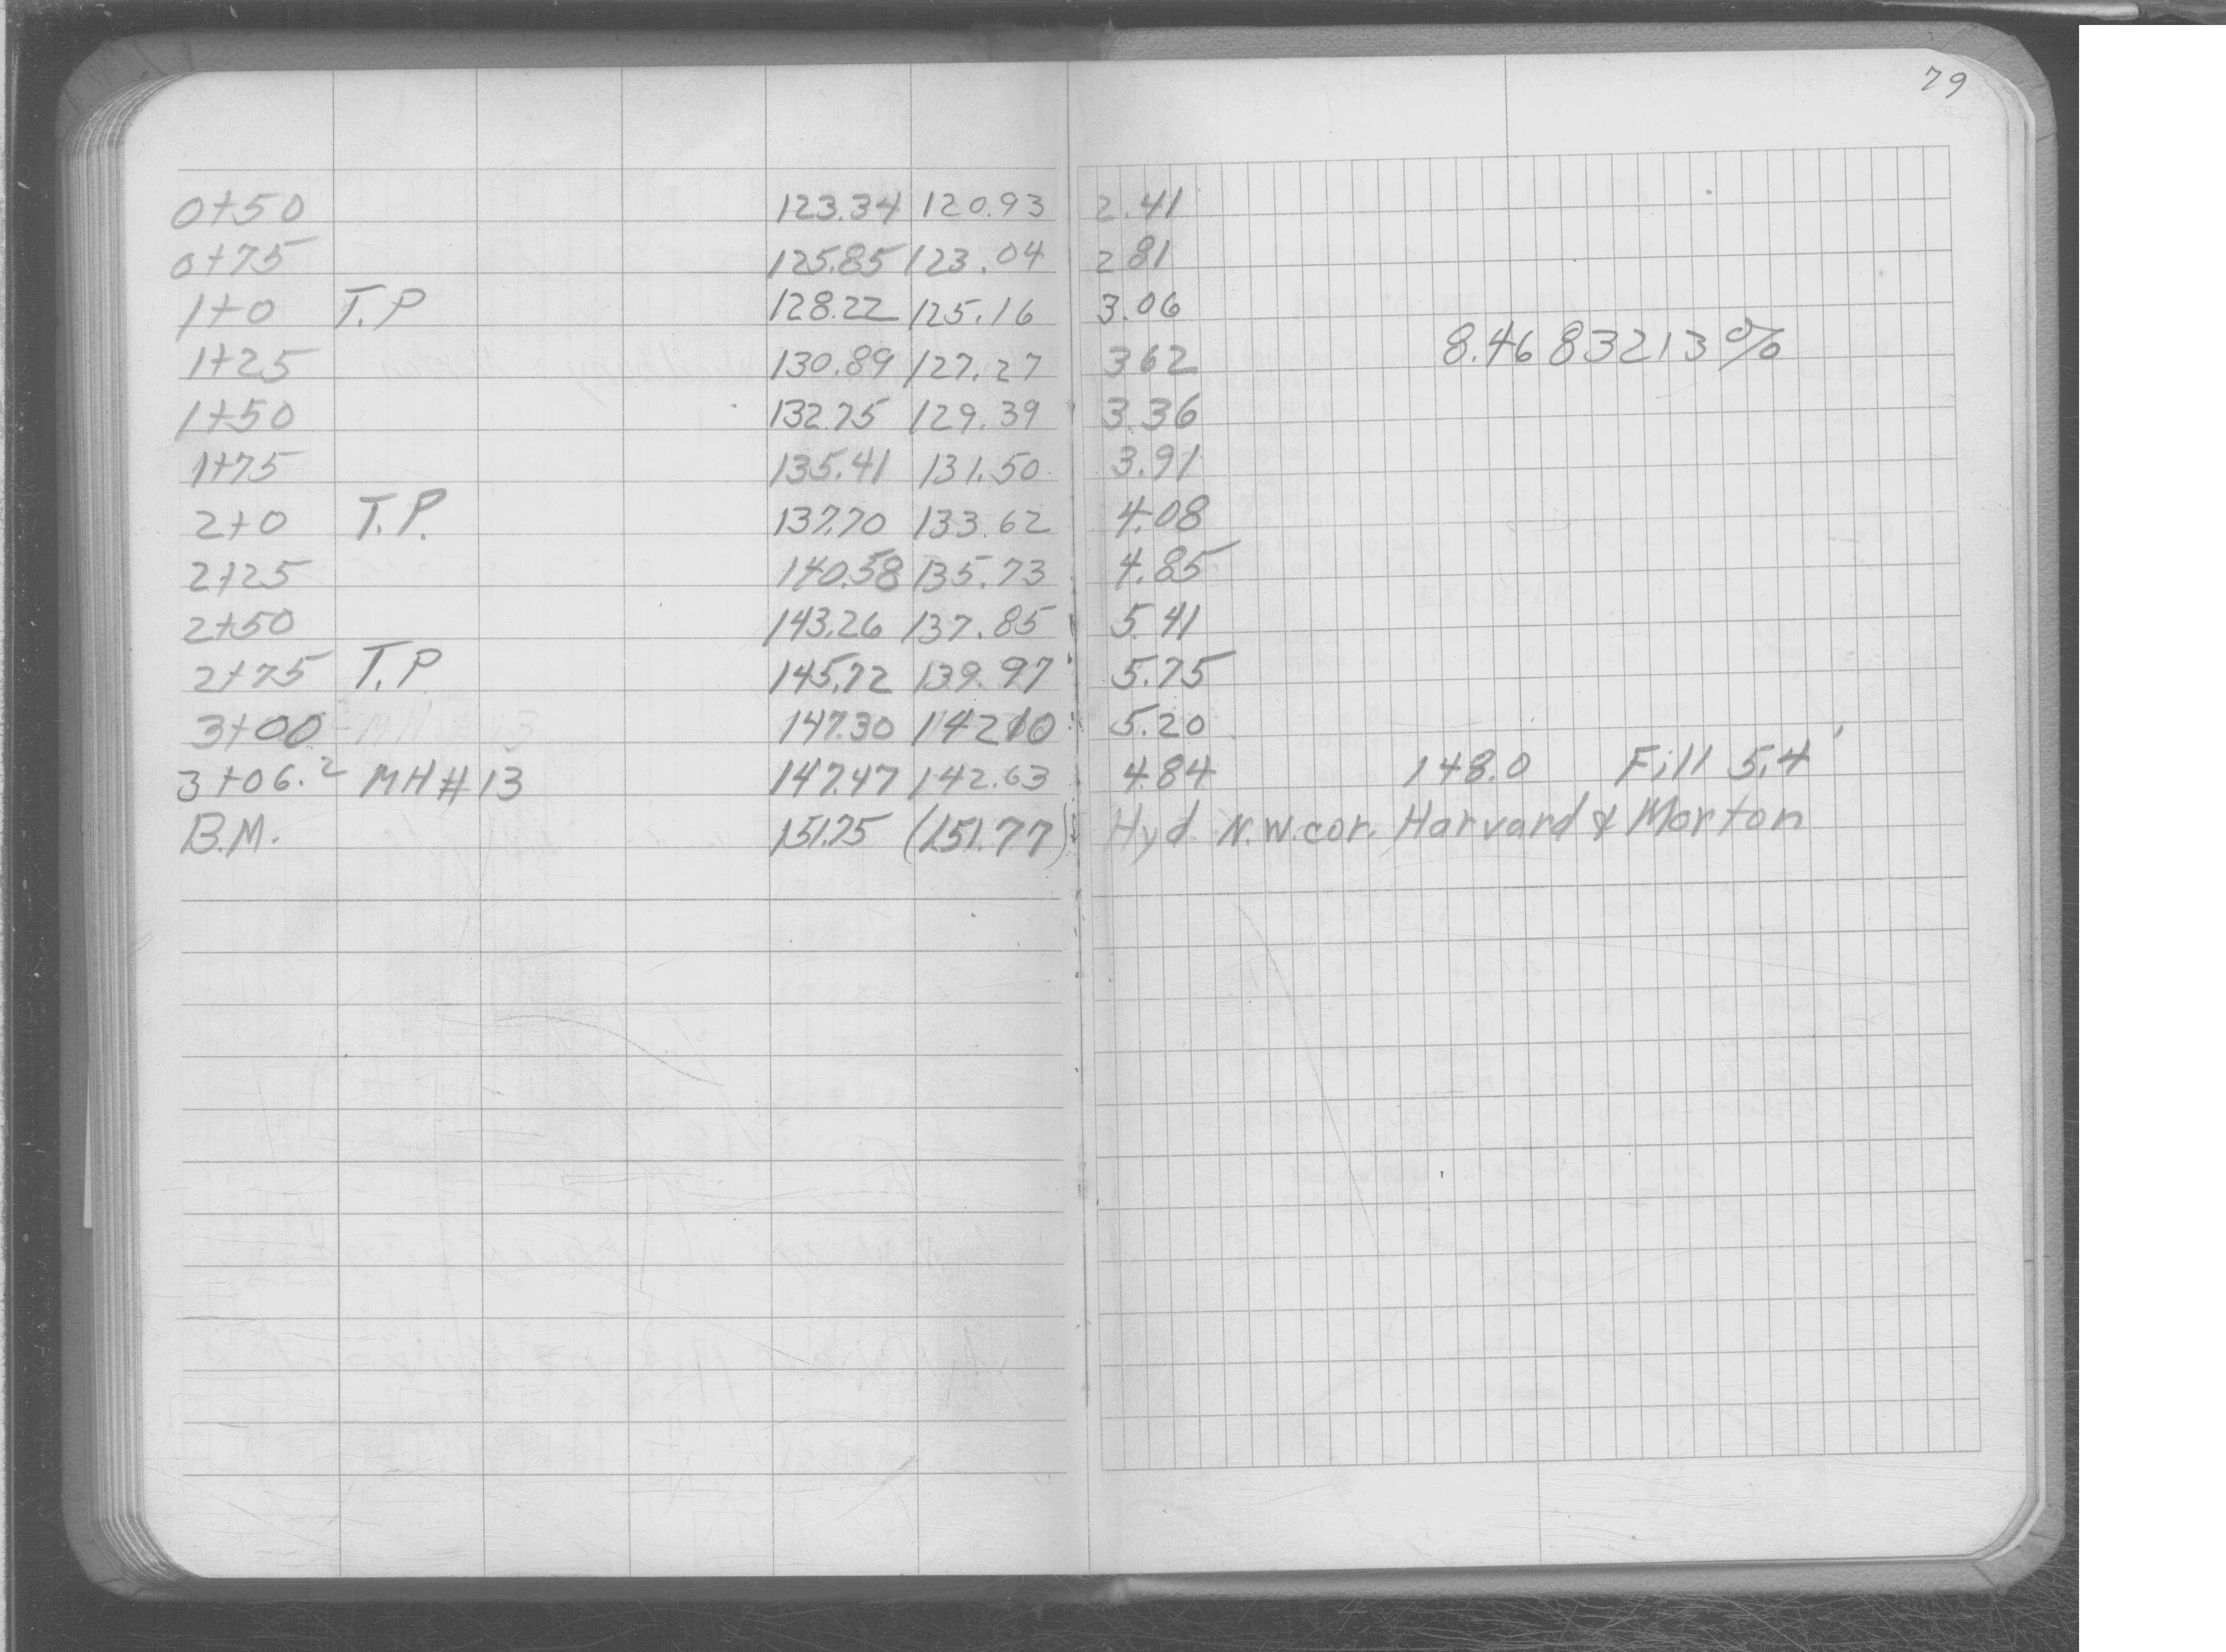 79
0+50 123.34 120.93 2.41
0+75 125.85 123.04 2 81
1+0 T.P 128.22 125.16 3.06
8.4683213%
1+25 130.89 127.27 3 62
1+50 132.75 129.39 3.36
1+75 135.41 131.50 3.91
2+0 T.P. 137.70 133.62 4.08
2+25 140.58 135.73 4.85
2+50 143.26 137.85 5.41
2+75 T.P 145.72 139.97 5.75
3+00 147.30 142.10 5.20
3+06.2 MH#13 147.47 142.63 4.84 148.0 Fill 5.4'
B.M. 151.75 (151.77) Hyd. N.W. cor. Harvard & Morton